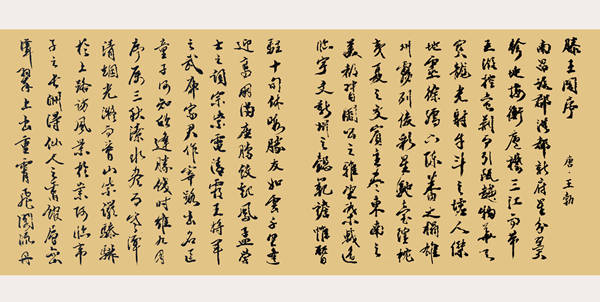 滕王阁序
唐·王勃
南昌故郡洪都新府星分翼
轸地接衡庐襟三江而带
五湖控蛮荆而引瓯越物华天
宝龙光射牛斗之墟人杰
地灵徐孺下陈蕃之榻雄
州雾列俊彩星驰台隍枕
夷夏之交宾主尽东南之
美都督阎公之雅望棨戟遥
临宇文新州之懿范襜帷暂
驻十旬休暇胜友如云千里逢
迎高朋满座腾蛟起凤孟学
士之词宗紫电清霜王将军
之武库家君作宰路出名区
童子何知躬逢胜饯时维九月
序属三秋潦水尽而寒潭
清烟光凝而暮山紫俨骖騑
于上路访风景于崇阿临帝
子之长洲得仙人之旧馆层峦
耸翠上出重霄飞阁流丹